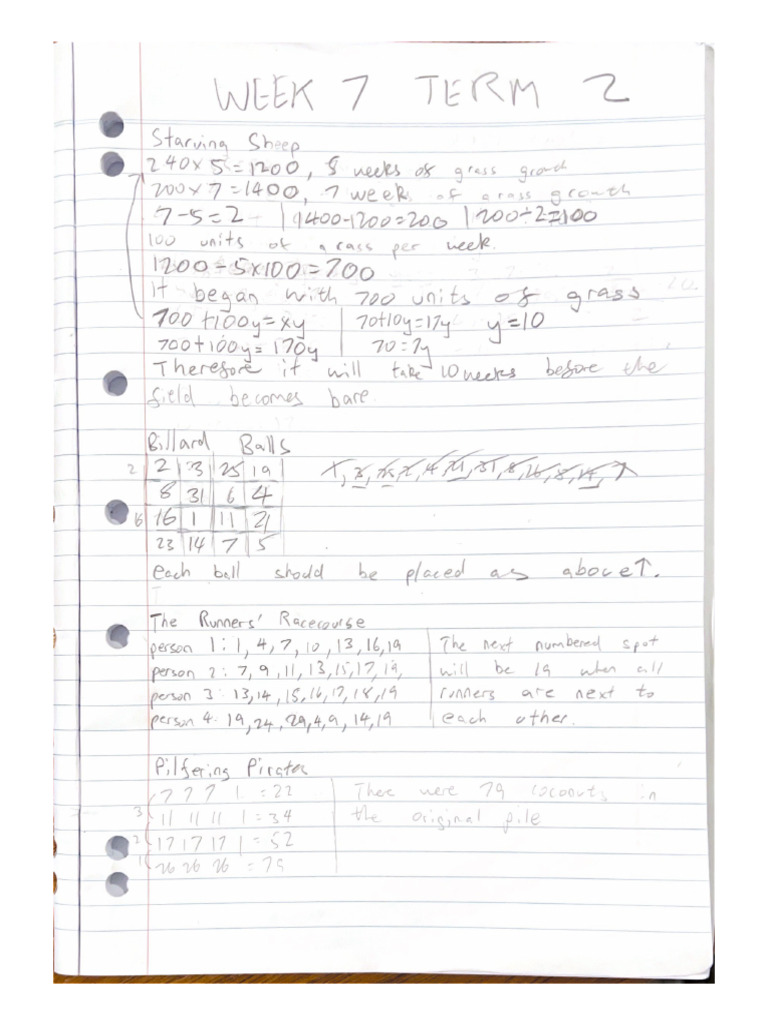 WEEK 7 TERM 2
Starving Sheep
240x5=1200, 5 weeks of grass growth
200x7=1400, 7 week of grass growth
7-5=2 | 1400-1200=200 | 200÷2=100
100 units of grass per week.
1200-5x100=700
It began with 700 units of grass
700+100y=xy | 70+10y=17y y=10
700+100y=170y | 70=7y
Therefore it will take 10 weeks before the
field becomes bare.
Billard Balls
2 2 3 25 19 1, 3,
8 31 6 4
16 16 1 11 21
23 14 7 5
each ball should be placed as above↑.
The Runners' Racecourse
person 1: 1, 4, 7, 10, 13, 16, 19 | The next numbered spot
person 2: 7, 9, 11, 13, 15, 17, 19, | will be 19 when all
person 3: 13, 14, 15, 16, 17, 18, 19 | runners are next to
person 4: 19, 24, 29, 4, 9, 14, 19 | each other.
Pilfering Pirates
7 7 7 1 =22 | There were 79 coconuts in
3 11 11 11 1 =34 | the original pile
2 17 17 17 1 =52
1 26 26 26 =79